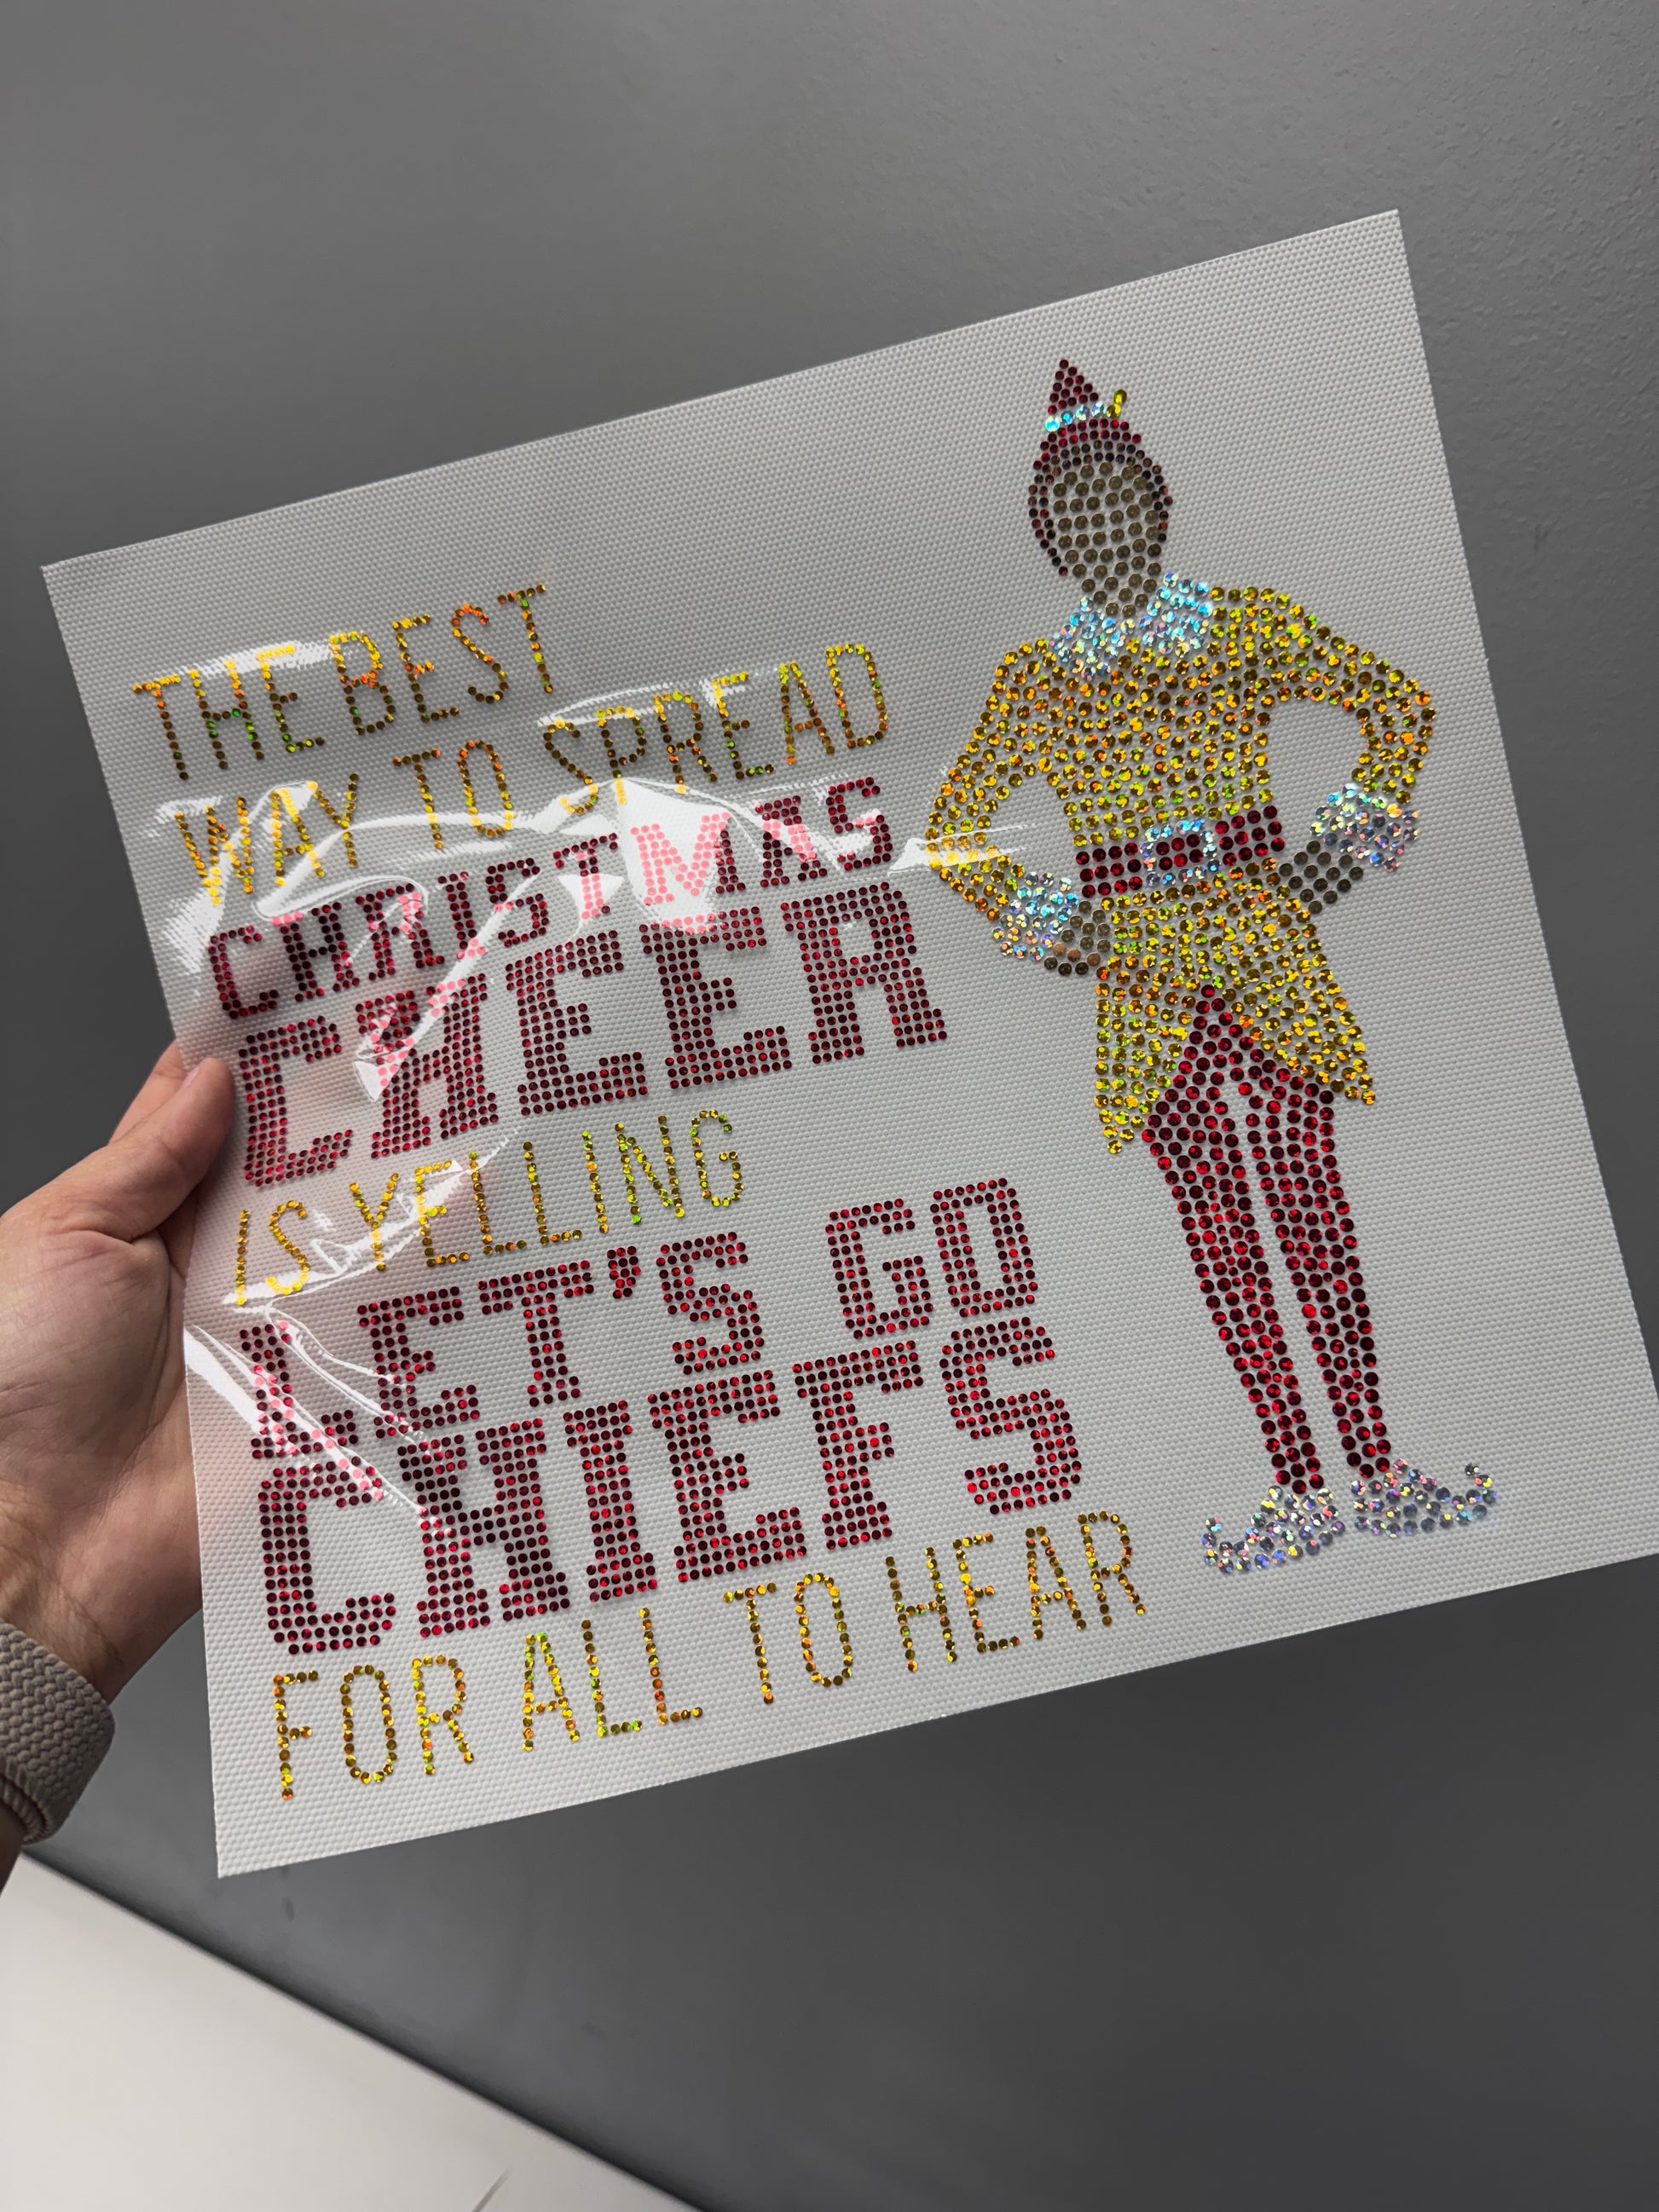 THE BEST
WAY TO SPREAD
CHRISTMAS
CHEER
IS YELLING
LET'S GO
CHIEFS
FOR ALL TO HEAR